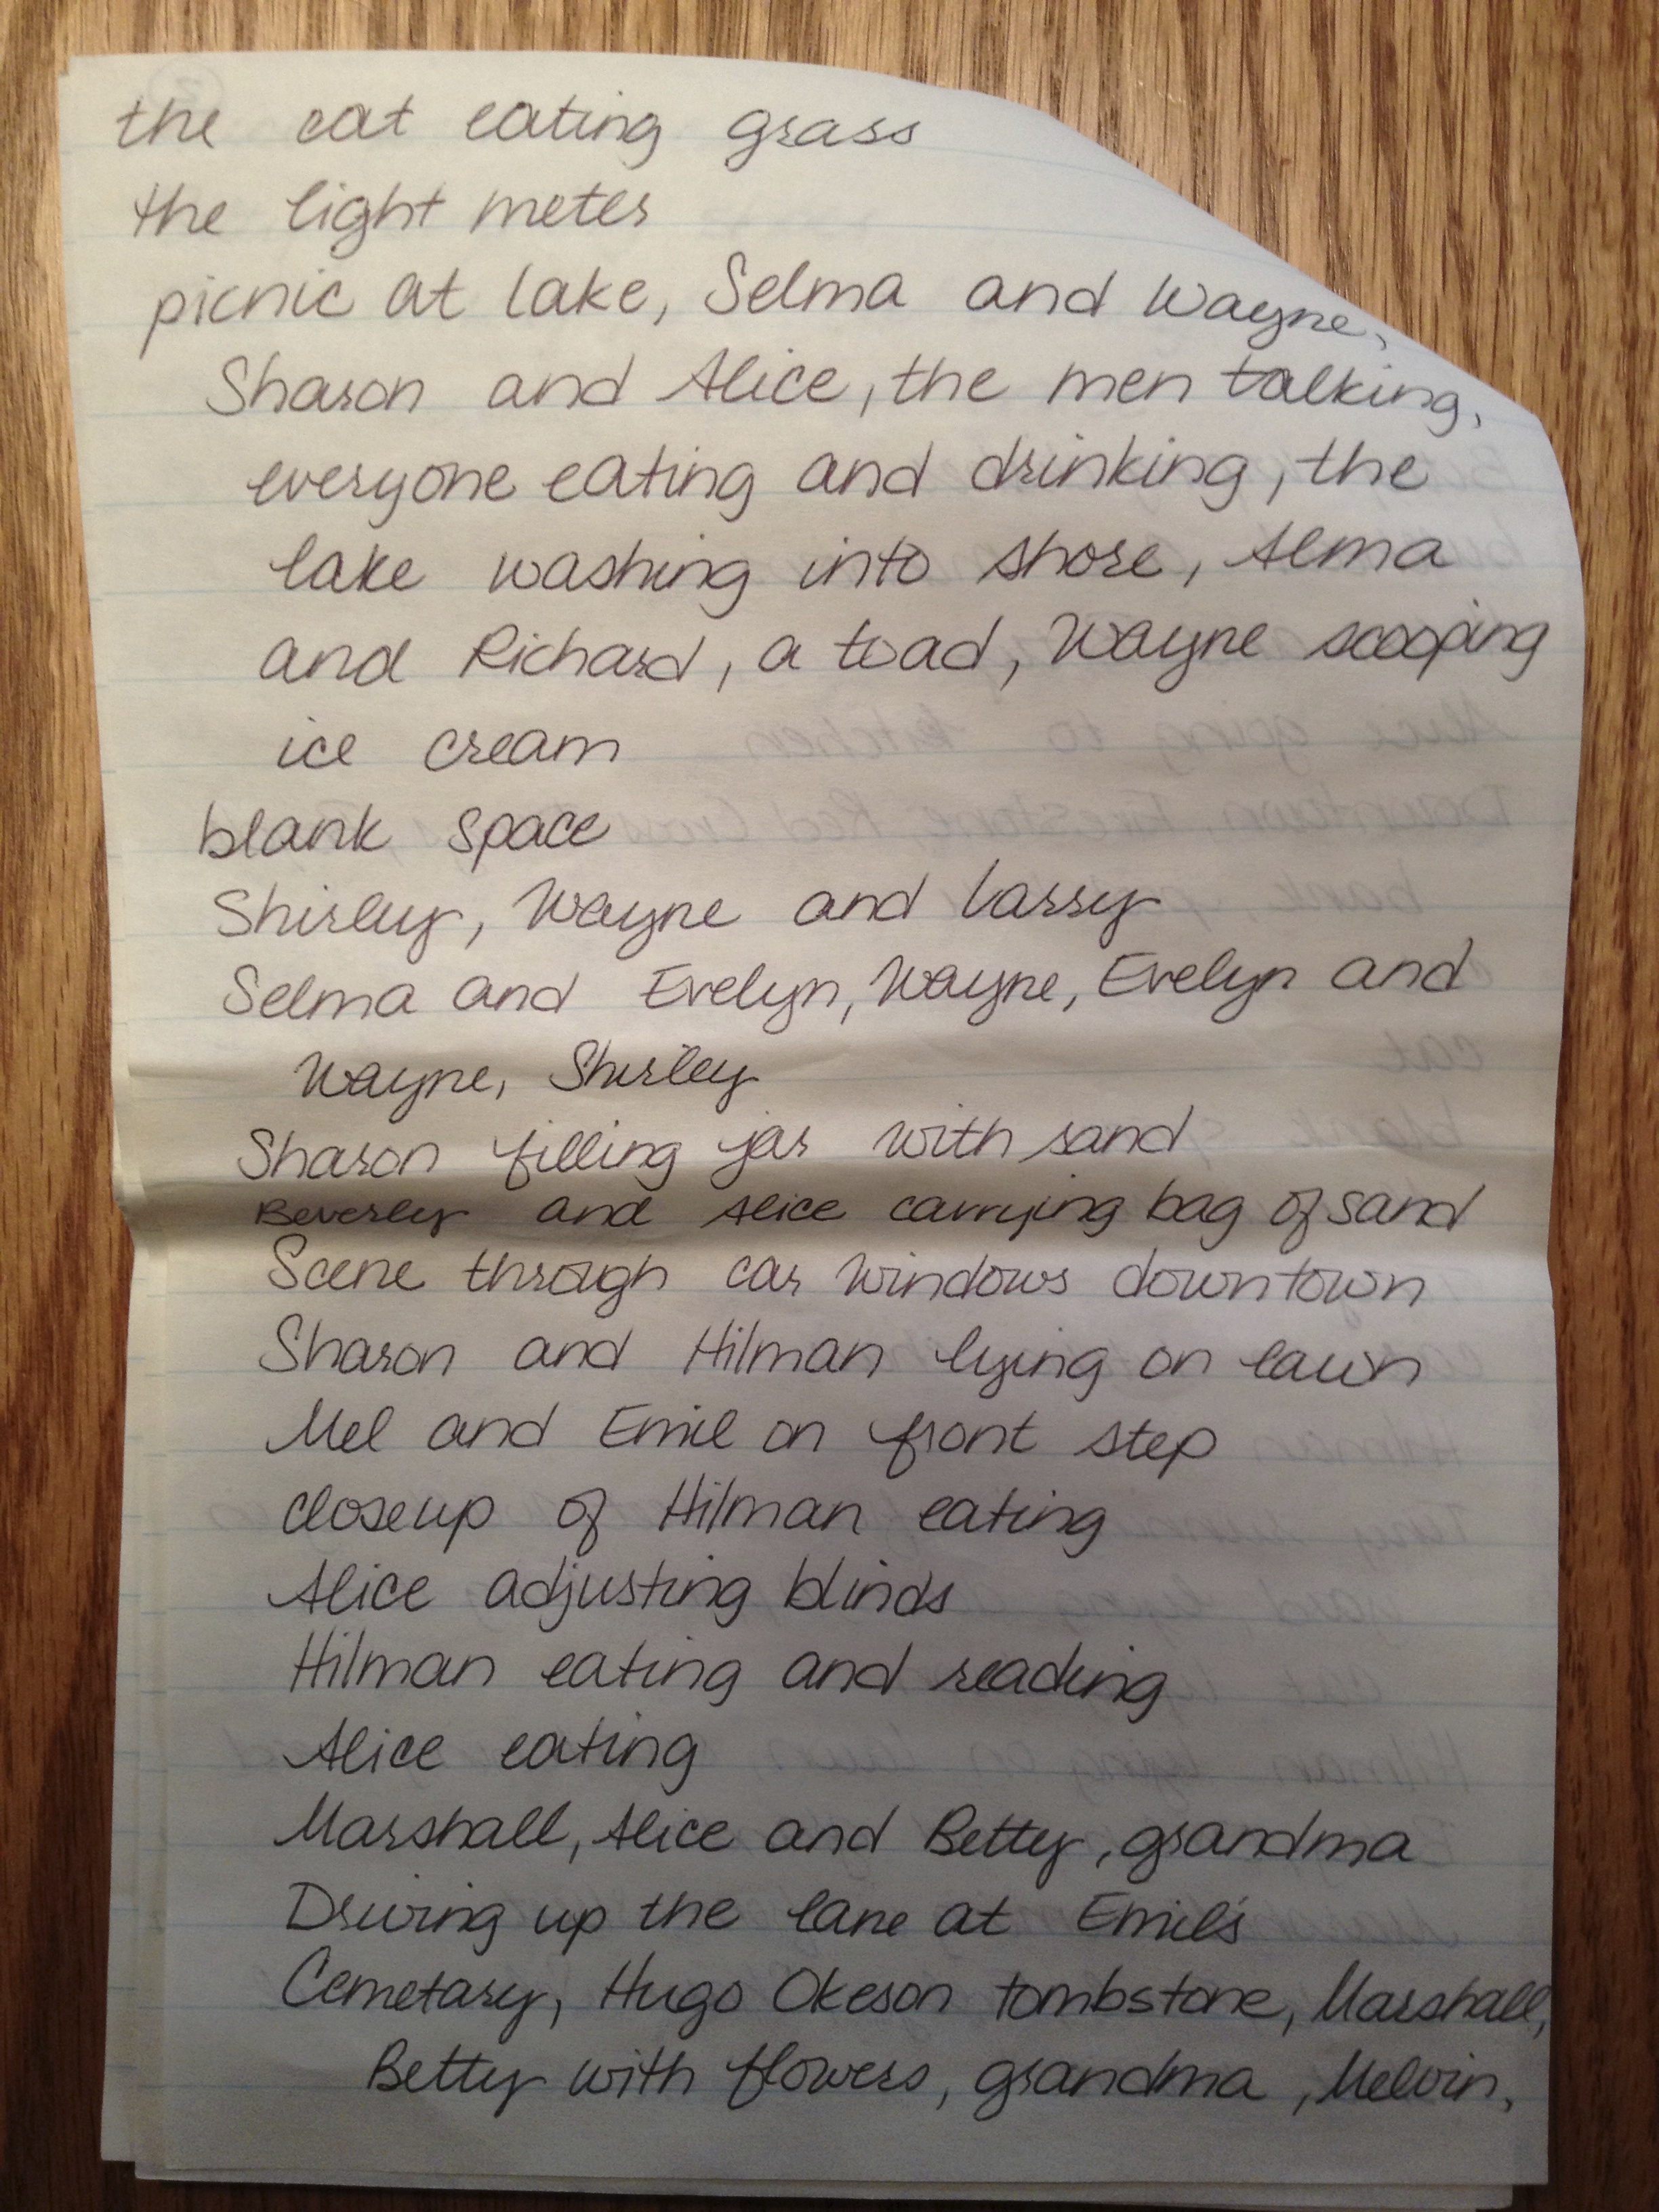 the cat eating grass
the light meter
picnic at lake, Selma and Wayne,
Sharon and Alice, the men talking,
everyone eating and drinking, the
lake washing into shore, Alma
and Richard, a toad, Wayne scooping
ice cream
blank space
Shirley, Wayne and Larry
Selma and Evelyn, Wayne, Evelyn and
Wayne, Shirley
Sharon filling jar with sand
Beverley and Alice carrying bag of sand
Scene through car windows downtown
Sharon and Hilman lying on lawn
Mel and Emil on front step
closeup of Hilman eating
Alice adjusting blinds
Hilman eating and reading
Alice eating
Marshall, Alice and Betty, grandma
Driving up the lane at Emil's
Cemetary, Hugo Okeson tombstone, Marshall,
Betty with flowers, grandma, Melvin,